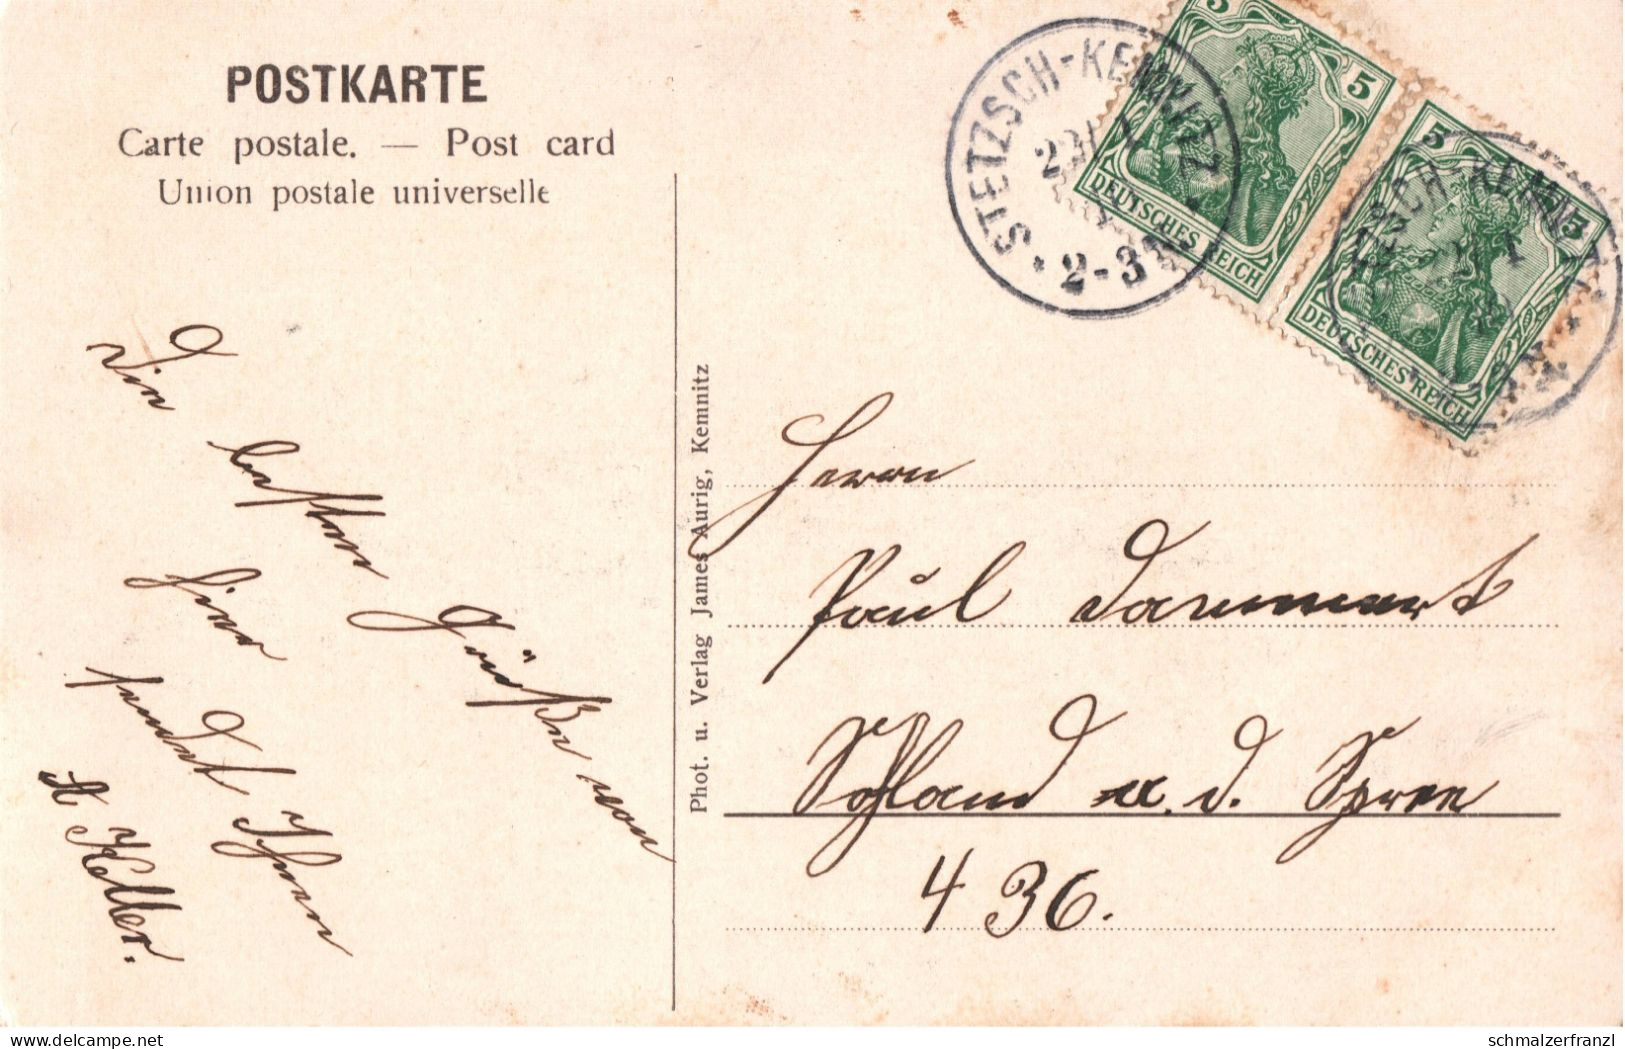 POSTKARTE
Carte postale. — Post card
Union postale universelle
Die besten Grüße von
hier
sendet Ihnen
A Keller.
Phot. u. Verlag James Aurig, Kemnitz
STETZSCH-KEMNITZ
2-3
5
5
DEUTSCHES REICH
5
5
DEUTSCHES REICH
Herrn
Paul
Sohland a. d. Spree
436.
schmalzerfranzl